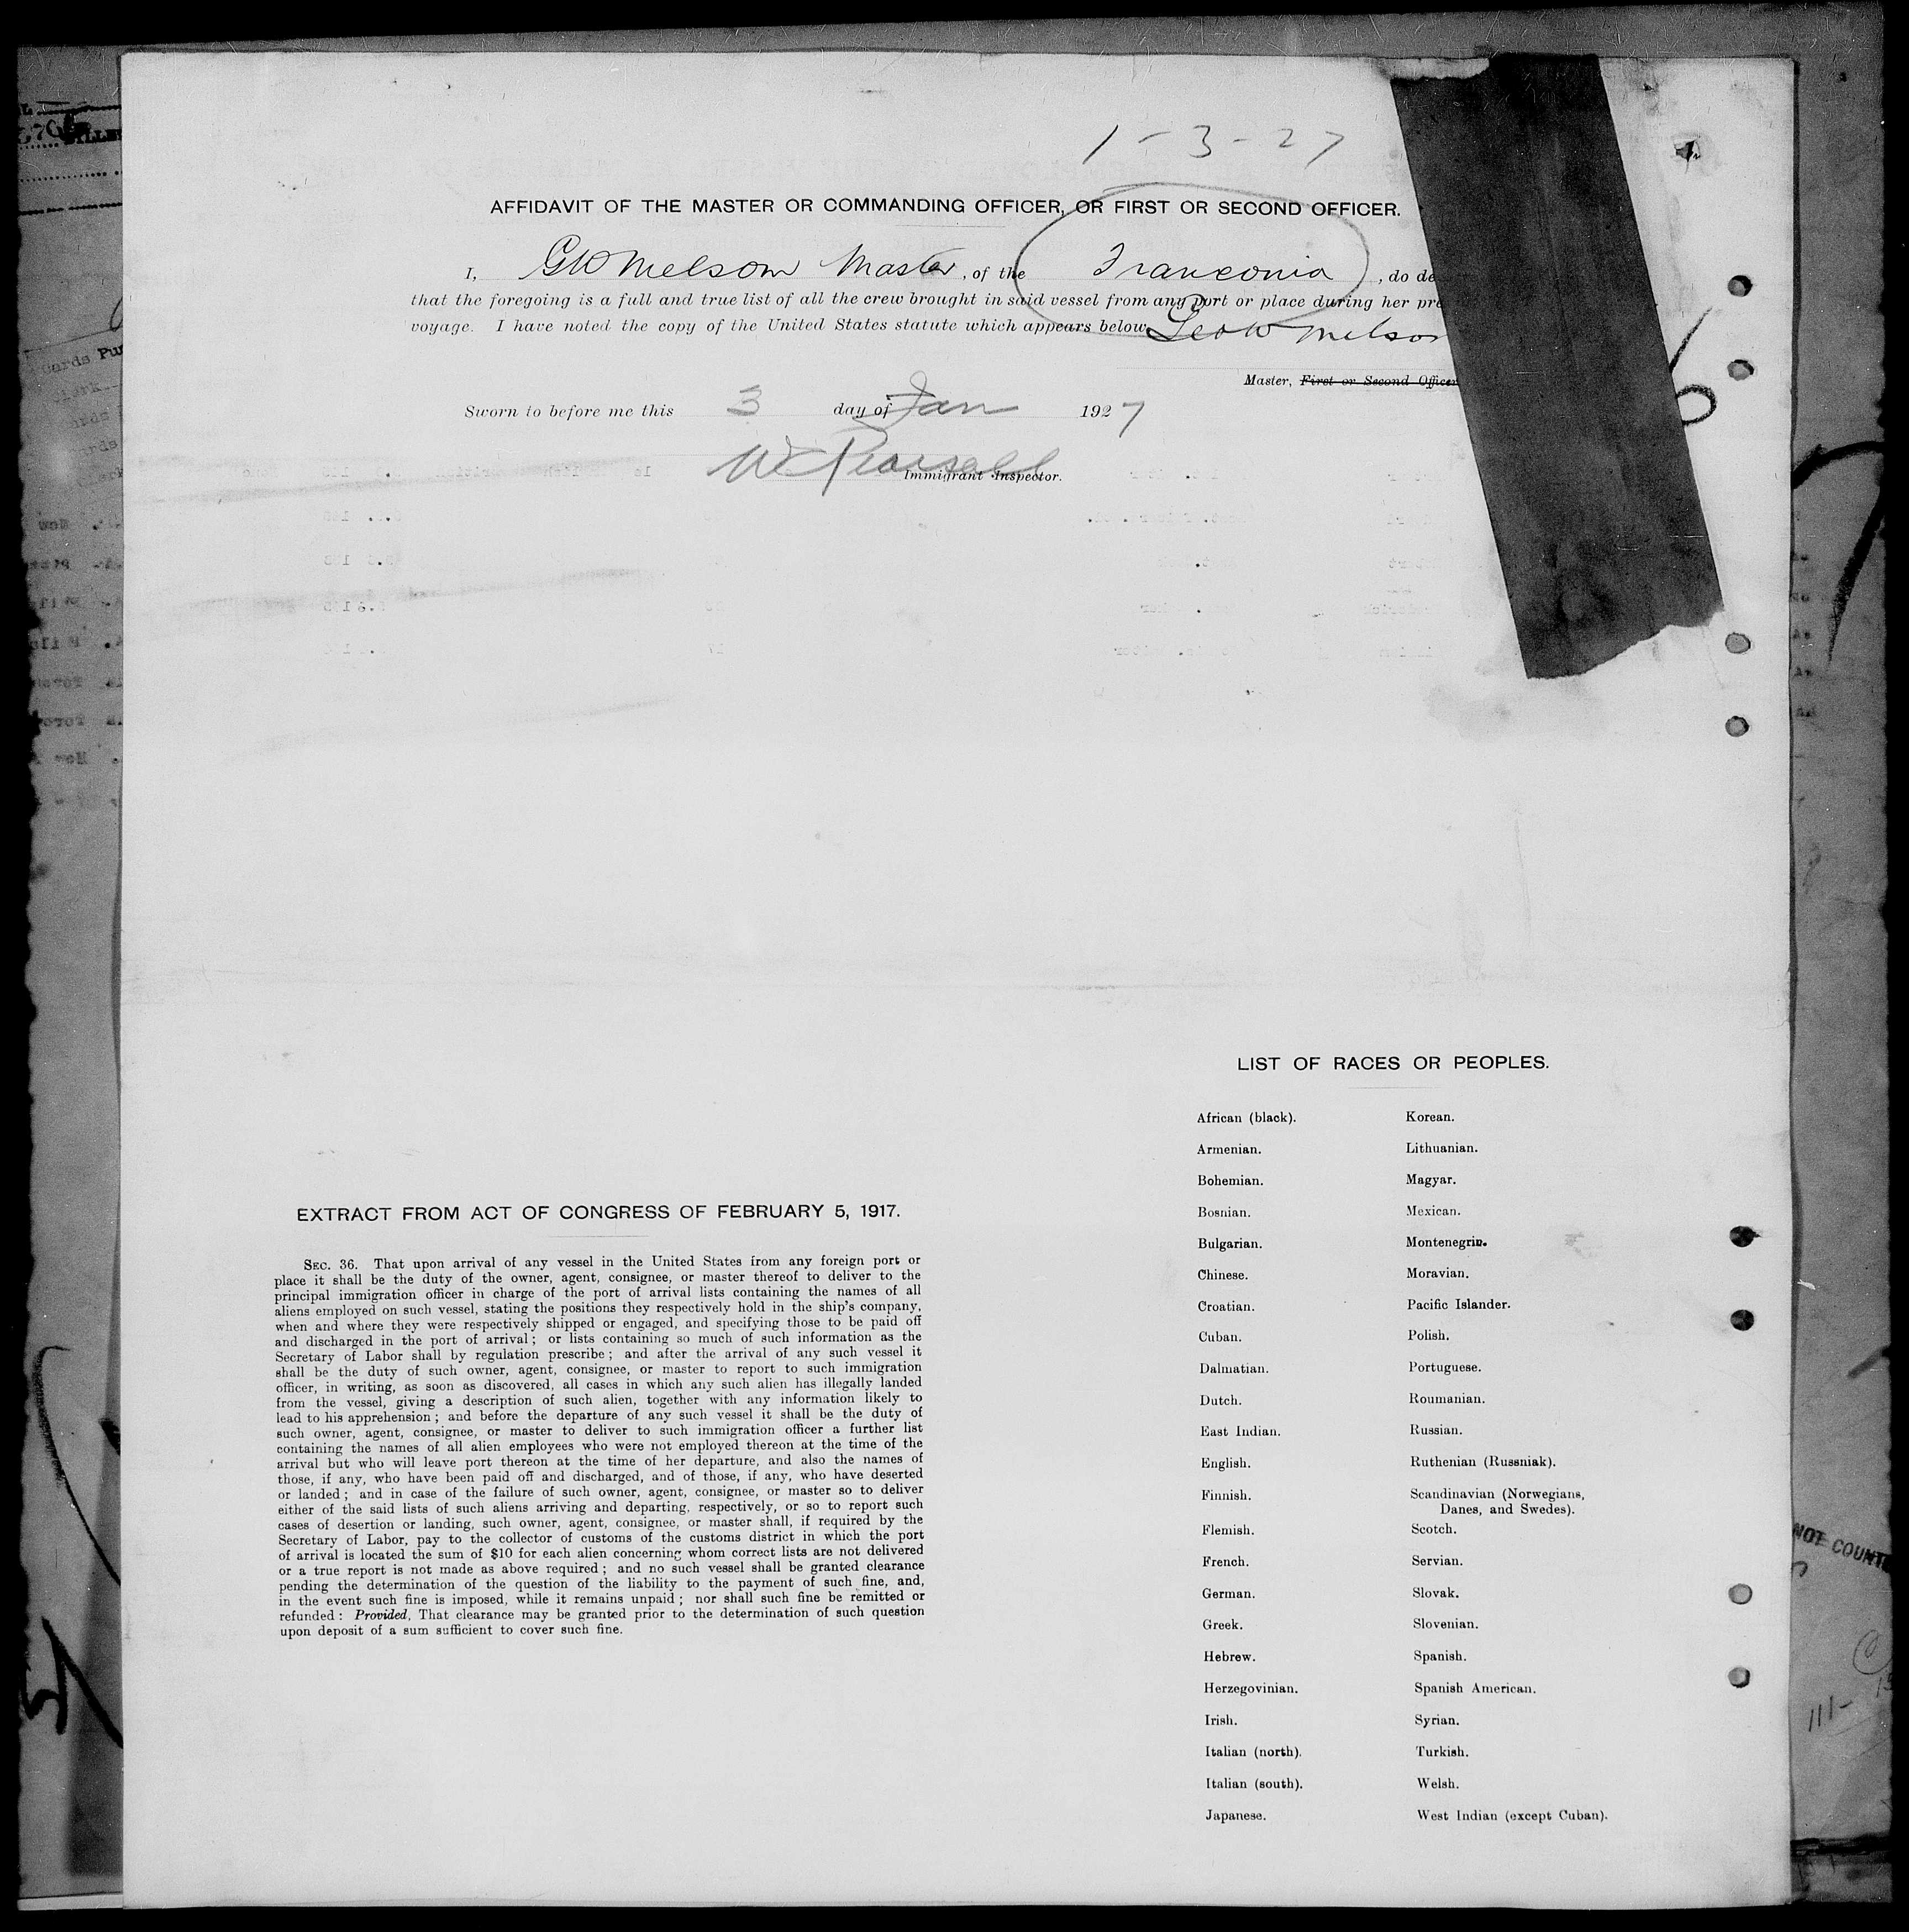 1-3-27
AFFIDAVIT OF THE MASTER OR COMMANDING OFFICER, OR FIRST OR SECOND OFFICER.
I, GW Melsom Master, of the Franconia, do de
that the foregoing is a full and true list of all the crew brought in said vessel from any port or place during her pre
voyage. I have noted the copy of the United States statute which appears below.
Geo W Melsom
Master, First or Second Officer
Sworn to before me this 3 day of Jan 1927
W Pearsall
Immigrant Inspector.
LIST OF RACES OR PEOPLES.
African (black).
Armenian.
Bohemian.
Bosnian.
Bulgarian.
Chinese.
Croatian.
Cuban.
Dalmatian.
Dutch.
East Indian.
English.
Finnish.
Flemish.
French.
German.
Greek.
Hebrew.
Herzegovinian.
Irish.
Italian (north).
Italian (south).
Japanese.
Korean.
Lithuanian.
Magyar.
Mexican.
Montenegrin.
Moravian.
Pacific Islander.
Polish.
Portuguese.
Roumanian.
Russian.
Ruthenian (Russniak).
Scandinavian (Norwegians,
Danes, and Swedes).
Scotch.
Servian.
Slovak.
Slovenian.
Spanish.
Spanish American.
Syrian.
Turkish.
Welsh.
West Indian (except Cuban).
EXTRACT FROM ACT OF CONGRESS OF FEBRUARY 5, 1917.
SEC. 36. That upon arrival of any vessel in the United States from any foreign port or
place it shall be the duty of the owner, agent, consignee, or master thereof to deliver to the
principal immigration officer in charge of the port of arrival lists containing the names of all
aliens employed on such vessel, stating the positions they respectively hold in the ship's company,
when and where they were respectively shipped or engaged, and specifying those to be paid off
and discharged in the port of arrival; or lists containing so much of such information as the
Secretary of Labor shall by regulation prescribe; and after the arrival of any such vessel it
shall be the duty of such owner, agent, consignee, or master to report to such immigration
officer, in writing, as soon as discovered, all cases in which any such alien has illegally landed
from the vessel, giving a description of such alien, together with any information likely to
lead to his apprehension; and before the departure of any such vessel it shall be the duty of
such owner, agent, consignee, or master to deliver to such immigration officer a further list
containing the names of all alien employees who were not employed thereon at the time of the
arrival but who will leave port thereon at the time of her departure, and also the names of
those, if any, who have been paid off and discharged, and of those, if any, who have deserted
or landed; and in case of the failure of such owner, agent, consignee, or master so to deliver
either of the said lists of such aliens arriving and departing, respectively, or so to report such
cases of desertion or landing, such owner, agent, consignee, or master shall, if required by the
Secretary of Labor, pay to the collector of customs of the customs district in which the port
of arrival is located the sum of $10 for each alien concerning whom correct lists are not delivered
or a true report is not made as above required; and no such vessel shall be granted clearance
pending the determination of the question of the liability to the payment of such fine, and,
in the event such fine is imposed, while it remains unpaid; nor shall such fine be remitted or
refunded: Provided, That clearance may be granted prior to the determination of such question
upon deposit of a sum sufficient to cover such fine.
NOT COUNT
111-